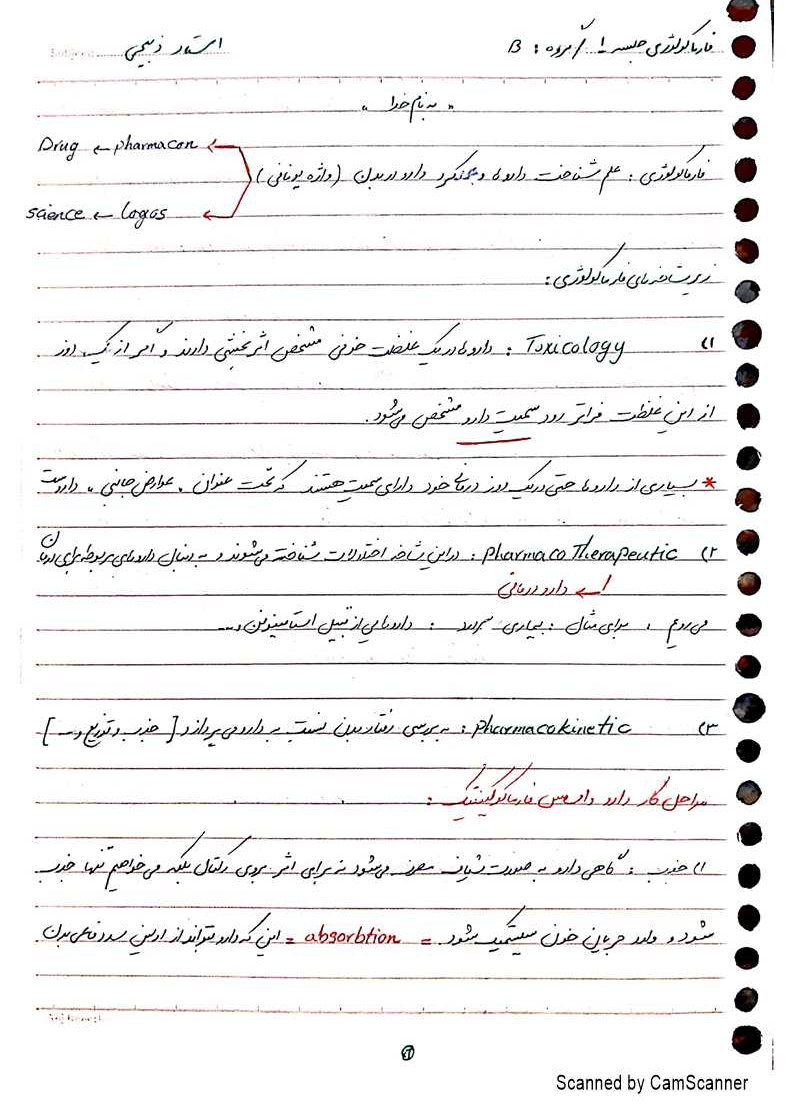 فارماکولوژی جلسه ۱ / گروه : B
استاد ذبیحی
Subject
« به نام خدا »
فارماکولوژی : علم شناخت داروها و عملکرد دارو در بدن (واژه یونانی)
Drug ← pharmacon
science ← Logos
زیرشاخه‌های فارماکولوژی :
۱) Toxicology : داروها در یک غلظت خونی مشخص اثربخشی دارند و اگر از یک دوز
از این غلظت فراتر رود سمیت دارو مشخص می‌شود.
* بسیاری از داروها حتی در یک دوز درمانی خود دارای سمیت هستند که تحت عنوان " عوارض جانبی " داروست
۲) pharmaco Therapeutic : در این شاخه اختلالات شناخته می‌شوند و به دنبال داروهای مربوطه برای درمان
دارو درمانی
می‌رویم . برای مثال : بیماری سردرد : داروهایی از قبیل استامینوفن و...
۳) pharmacokinetic : به بررسی رفتار بدن نسبت به دارو می‌پردازد [ جذب و توزیع و... ]
مراحل کار دارو براساس فارماکوکینتیک :
۱) جذب : گاهی دارو به صورت شیاف مصرف می‌شود نه برای اثر بروی رکتال بلکه می‌خواهیم تنها جذب
شود و وارد جریان خون سیستمیک شود = absorbtion = این که دارو بتواند از اولین سد دفاعی بدن
۱
Scanned by CamScanner